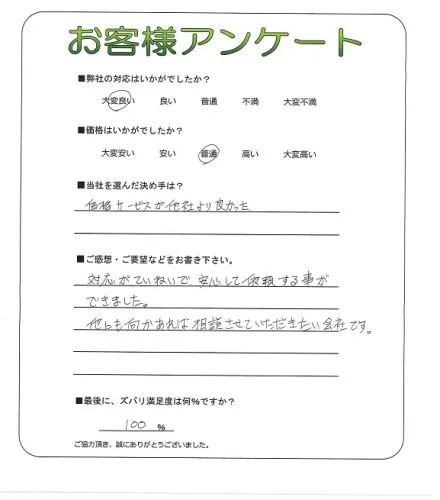 お客様アンケート
■弊社の対応はいかがでしたか？
大変良い 良い 普通 不満 大変不満
■価格はいかがでしたか？
大変安い 安い 普通 高い 大変高い
■当社を選んだ決め手は？
価格サービスが他社より良かった
■ご感想・ご要望などをお書き下さい。
対応がていねいで安心して依頼する事が
できました。
他にも何かあれば相談させていただきたい会社です。
■最後に、ズバリ満足度は何%ですか？
100 %
ご協力頂き、誠にありがとうございました。